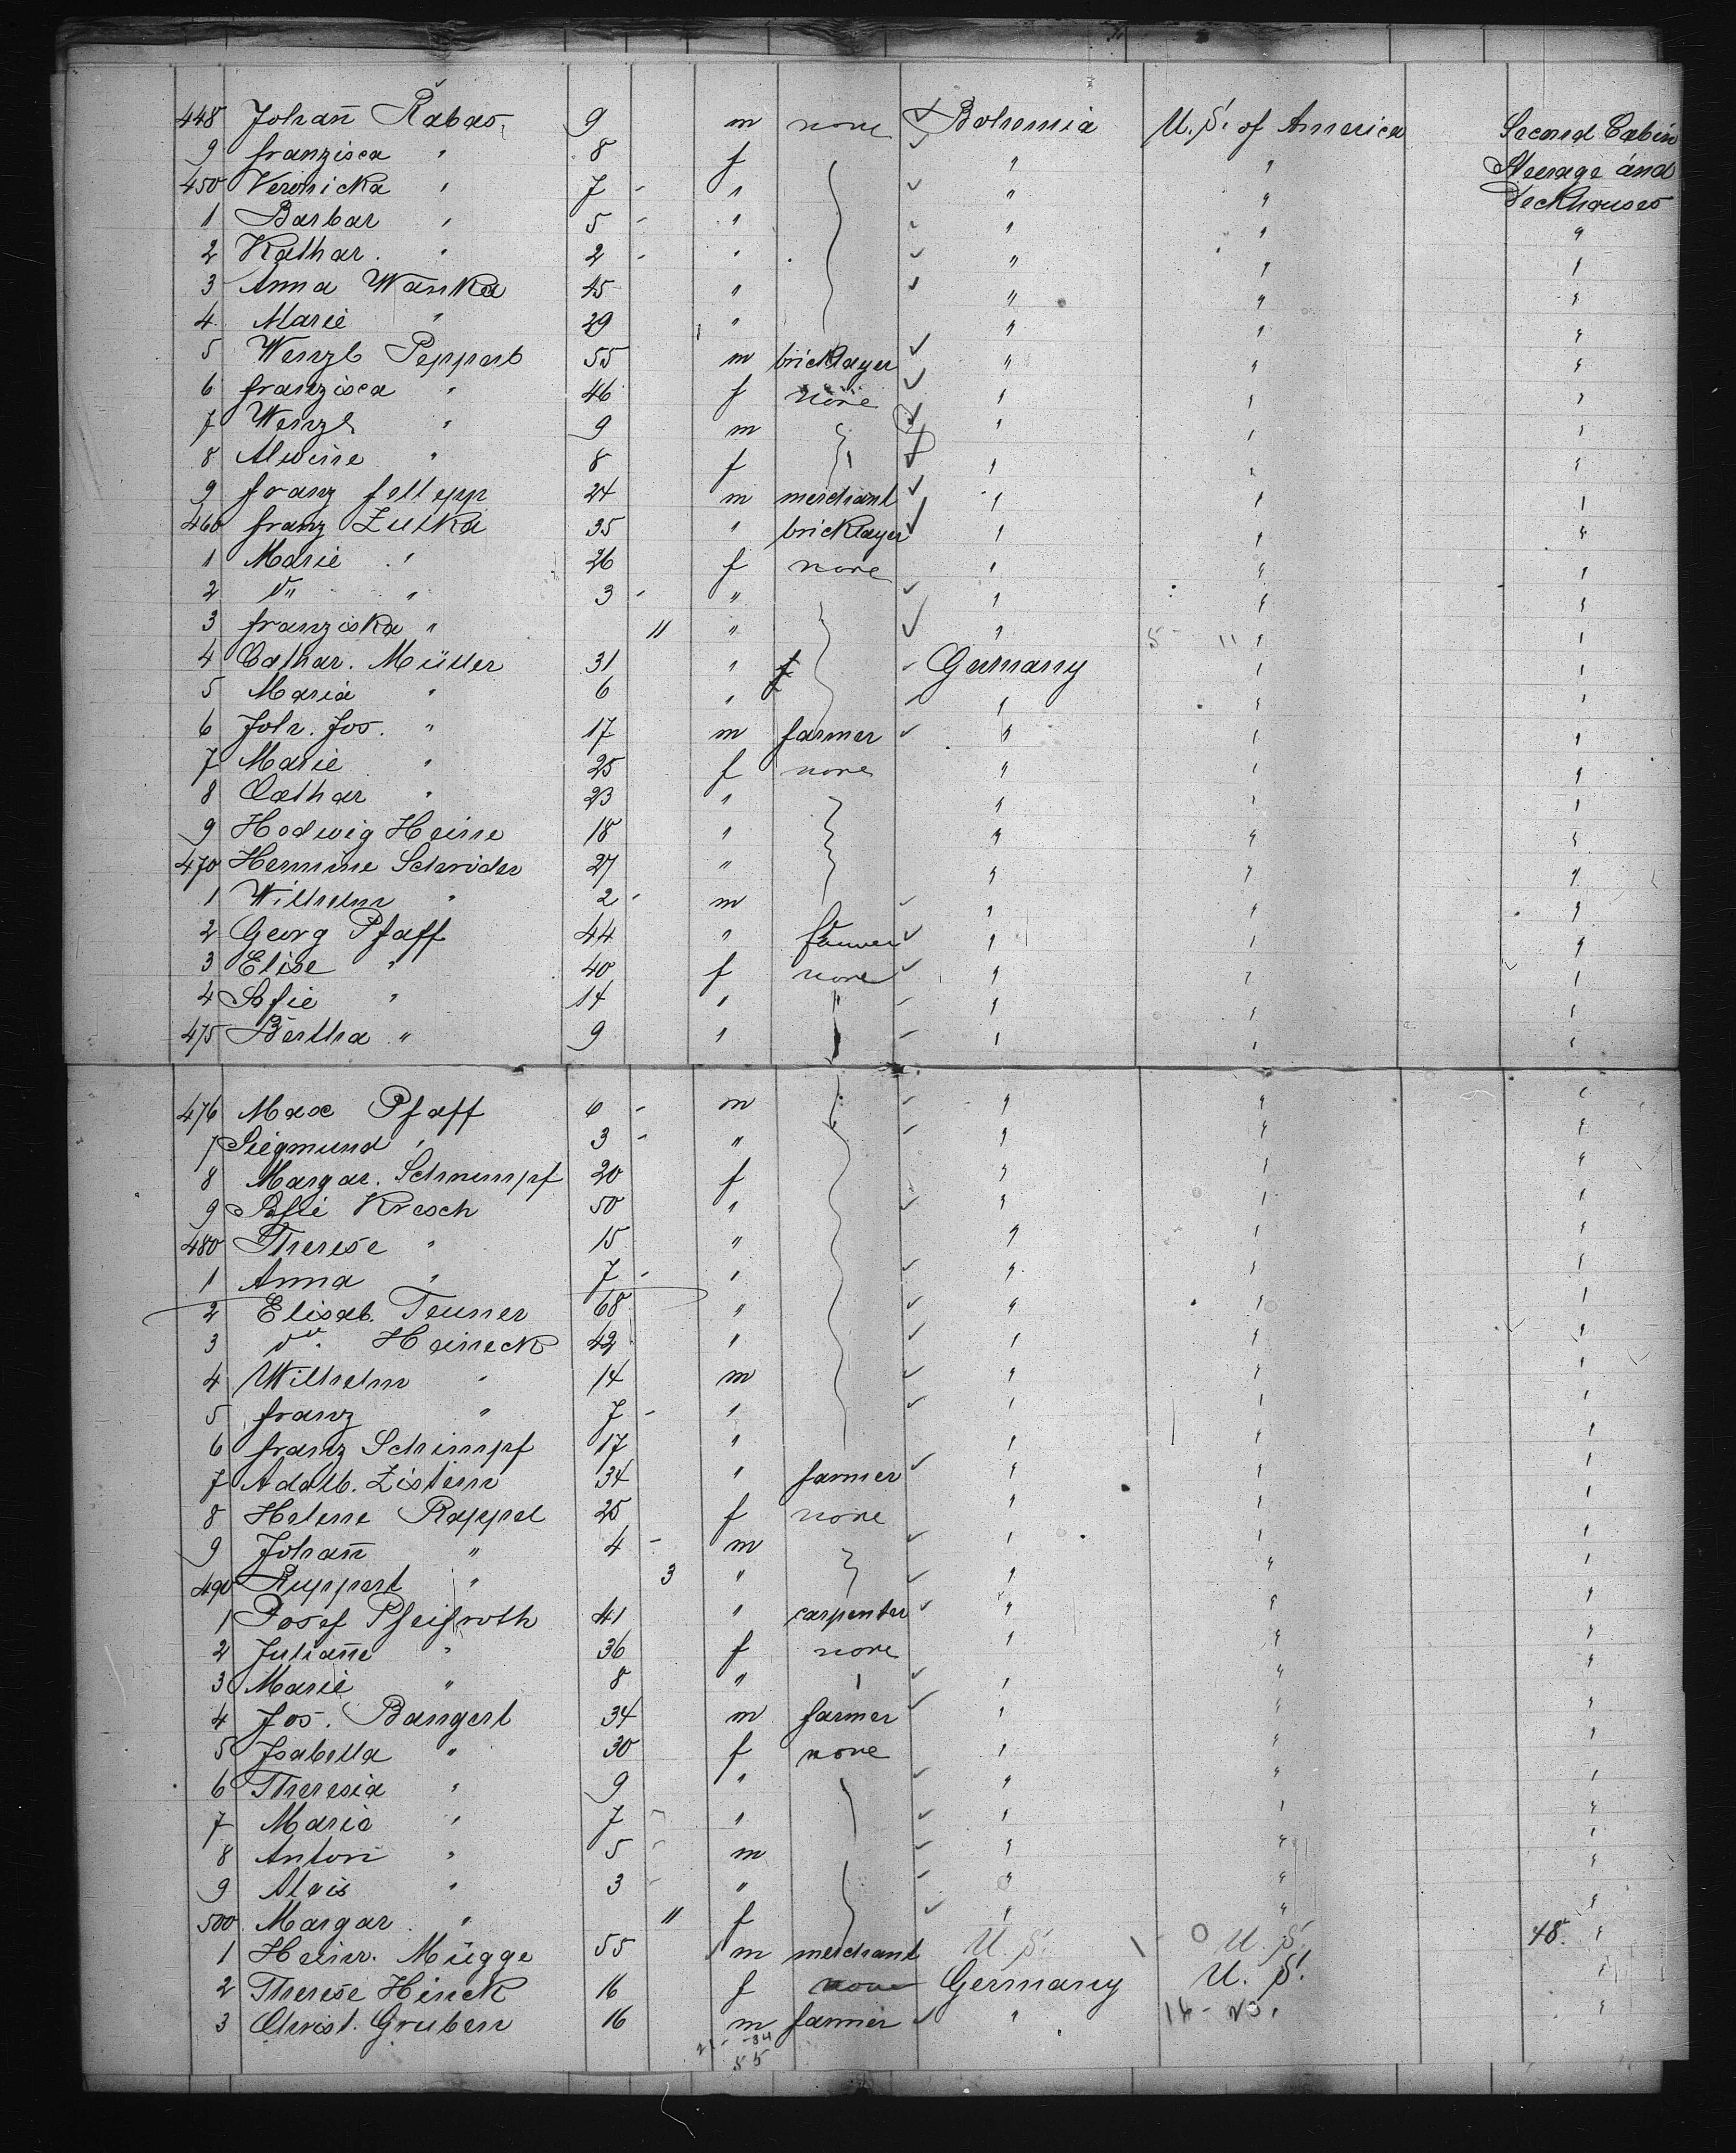 448 Johañ Rabas 9 m none Bohemia U. S. of America Second Cabin
9 franzisca " 8 f " " Steerage and
450 Veronicka " 7 - " " " Deckhouses
1 Barbar " 5 - " " " "
2 Kathar. " 2 - " " " "
3 Anna Wanka 45 " " " "
4 Marie " 29 " " " "
5 Wenzl Peppert 55 m bricklayer " " "
6 franzisca " 46 f none " " "
7 Wenzl " 9 m " " "
8 Alwine " 8 f " " " "
9 franz fellepp 24 m merchant " " "
460 franz Zuika 35 " bricklayer " " "
1 Marie " 26 f none " " "
2 do " 3 - " " " "
3 franziska " 11 " " 5 - 11 " "
4 Cathar. Müller 31 " f Germany " "
5 Maria " 6 " " " "
6 Joh. Jos. " 17 m farmer " " "
7 Marie " 25 f none " " "
8 Cathar " 23 " " " "
9 Hedwig Heine 18 " " " "
470 Hermine Schröder 27 " " " "
1 Wilhelm " 2 - m " " "
2 Georg Pfaff 44 " farmer " " "
3 Elise " 40 f none " " "
4 Sofie " 14 " " " " "
475 Bertha " 9 " " " "
476 Max Pfaff 6 - m " " "
7 Siegmund " 3 - " " " "
8 Margar. Schrumpf 20 f " " "
9 Sofie Kresch 50 " " " "
480 Therese " 15 " " " "
1 Anna " 7 - " " " "
2 Elisab. Teuner 68 " " " "
3 do. Heineck 42 " " " "
4 Wilhelm " 14 m " " "
5 franz " 7 - " " " "
6 franz Schimpf 17 " " " "
7 Adalb. Zistern 34 " farmer " " "
8 Helene Rappel 25 f none " " "
9 Johañ " 4 - m " " "
490 Ruppert " 3 " " " "
1 Josef Pfeifroth 41 " carpenter " " "
2 Juliañe " 36 f none " " "
3 Marie " 8 " " " " "
4 Jos. Bangert 34 m farmer " " "
5 Isabella " 30 f none " " "
6 Theresia " 9 " " " "
7 Marie " 7 - " " " "
8 Anton " 5 - m " " "
9 Alois " 3 - " " " "
500 Margar. " 11 f " " "
1 Heinr. Mügge 55 m merchant U. S. U. S. 48. "
2 Therese Hinck 16 f none Germany U. S. "
3 Christ. Gruben 16 m farmer " "
55